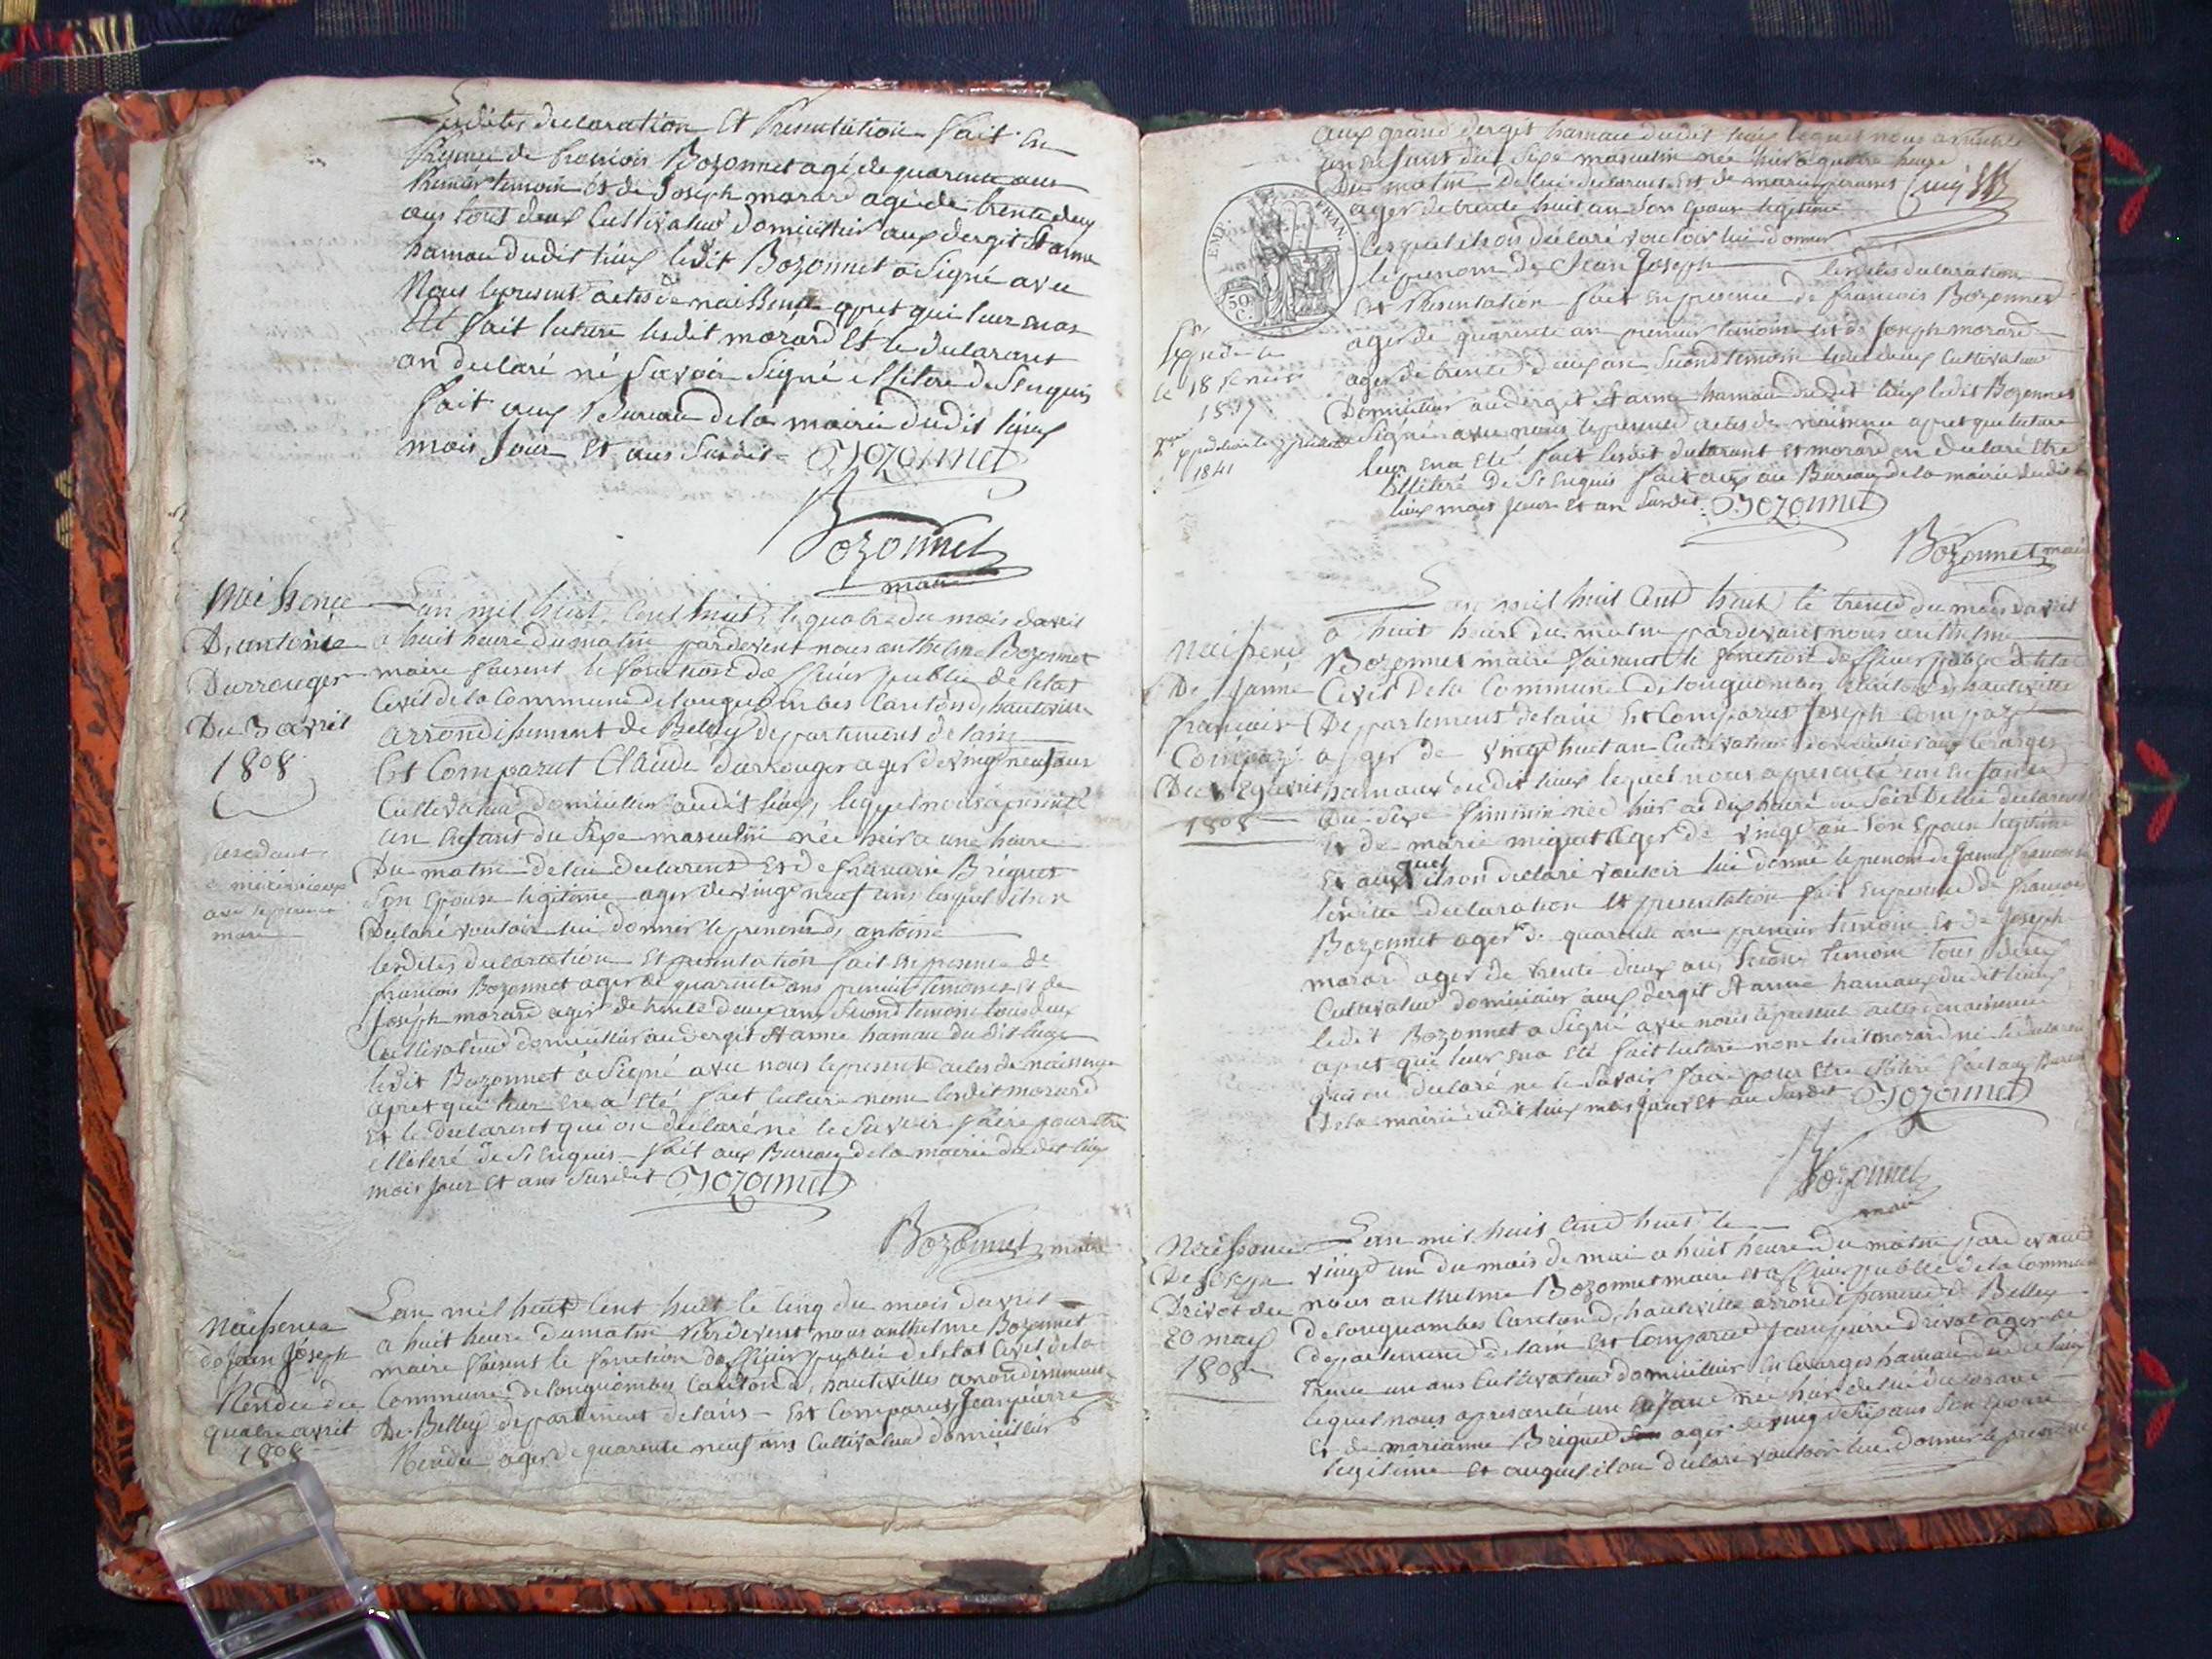 Lesdites declaration Et Presentation fait En
Presence de francois Bozonnet agé de quarente ans
Premier temoin et de Joseph morard agé de trente deux
ans tous deux Cultivateur domicillier aux dergit St anne
hamau dudit lieux ledit Bozonnet a Signé avec
Nous le present actes de naissence apret qui leur en as
Eté fait luture lesdit morard Et le declarant
on declaré né Savoir Signé illitere de Senquis
fait aux Bureau de la mairie dudit lieux
mois Jour Et ans Susdit Bozonnet
Bozonnet
maire
Naissence
D, antoine
Durrouger
Du 3 avril
1808
Lan mil huit Cent huit, le quatre du mois davril
a huit heure du matin pardevent nous anthelme Bozonnet
maire faisent le fonction de officier publie de letat
Civil de la Commune de longecombes Canton d, hauteville
arrondissement de Belley departement de lain
Est Comparut Claude durrouger ager de vingt neuf ans
Cultivateur domicillier audit lieux, lequel nous a presenté
un Enfant du Sexe masculin née hier a une heure
Du matin de lui declarent Et de francoise Briguet
Son Epouse legitime ager de vingt neuf ans lesquel
Declaré vouloir lui donner le prenom d, antoine
lesdites declaration Et presentation fait en presence de
francois Bozonnet ager de quarente ans premier temoin et de
Joseph morard ager de trente deux ans Second temoin tous deux
Cultivateur domicillier au dergit St anne hamau du dit lieux
ledit Bozonnet a Signé avec nous le present actes de naissence
apret qui leur en a Eté fait luture nom lesdit morard
Et le declarent qui on declaré ne le Savoir faire pour etre
illiteré de St Enquis fait aux Bureau de la mairie du dit lieux
mois Jour Et ans Susdit Bozonnet
Bozonnet maire
Naissence
de Jean Joseph
Rendu du
quatre avril
1808
Lan mil huit Cent huit le Cinq du mois davril
a huit heure du matin Pardevent nous anthelme Bozonnet
maire faisent le fonction dofficier publié de letat Civil de la
Commune de longecombes Canton d, hautevilles arrondissement
De Belley departement de lain Est Comparut Jean pierre
Rendu ager de quarente neuf ans Cultivateur domicillier
aux grand dergit hamau dudit lieux lequel nous a presenté
un enfant du Sexe masculin née hier a quatre heure
Du matin De lui declarent Et de marie
ager de trente huit an Son Epouse legitime
lesquel ils on déclaré vouloir lui donner
le prenom de Jean Joseph lesdites declaration
Et Presentation fait en presence de francois Bozonnet
ager de quarente an premier temoin et de Joseph morard
ager de trente deux an Second temoin tous deux Cultivateur
Domicillier au dergit St anne hamau dudit lieux ledit Bozonnet
a Signé avec nous le present actes de naissence apret que luture
leur en a Eté fait lesdit declarant et morard on declaré Etre
illiteré De St Enquis fait aux au Bureau de la mairie dudit
lieux mois Jour Et an Susdit. Bozonnet
Bozonnet maire
EMP. FRAN
50 C.
le 18
1841
Naissence
De Janne
francoise
Compaz
Du 29 avril
1808
Lan mil huit Cent huit le trente du mois davril
a huit heure du matin pardevant nous anthelme
Bozonnet maire faisant le fonction dofficier publie de letat
Civil De la Commune de longecombes Canton d, hauteville
Departement de lain Est Comparut Joseph Compaz
ager de vingt huit an Cultivateur domicillier aux lavarges
hamaux dudit lieux lequel nous a presenté un Enfant
du Sexe feminin née hier a Dix heure du Soir De lui declarent
Et de marie miguet ager de vingt an Son Epouse legitime
Et auxquel ils on declaré vouloir lui donné le prenom de Janne francoise
lesdite declaration Et presentation fait en presence de francois
Bozonnet ager de quarente an premier temoin Et de Joseph
morard ager de trente deux an, Second temoin tous deux
Cultivateur domicillier aux dergit St anne hamaux du dit lieux
ledit Bozonnet a Signé avec nous le present actes de naissence
apret que leur en a Eté fait luture nom ledit morard ne le declarent
qui on declaré ne le Savoir faire pour Etre illiteré fait aux Bureau
De la mairie dudit lieux mois Jour Et an Susdit Bozonnet
Bozonnet
maire
Naissence
De Joseph
Drivot du
20 may
1808
Lan mil huit Cent huit le
vingt un du mois de mai a huit heure du matin pardevant
nous anthelme Bozonnet maire et officier publié de la Commune
de longecombes Canton d, hauteville arrondissement de Belley
departement de lain Est Comparut Jean pierre drivot ager de
trente un ans Cultivateur domicillier En lavarges hamau dudit lieux
lequel nous a presenté un Enfant née hier de lui declarant
Et de marianne Briguet ager de vingt Six ans Son Epouse
legitime Et auquel il on declaré vouloir lui donner le prenom